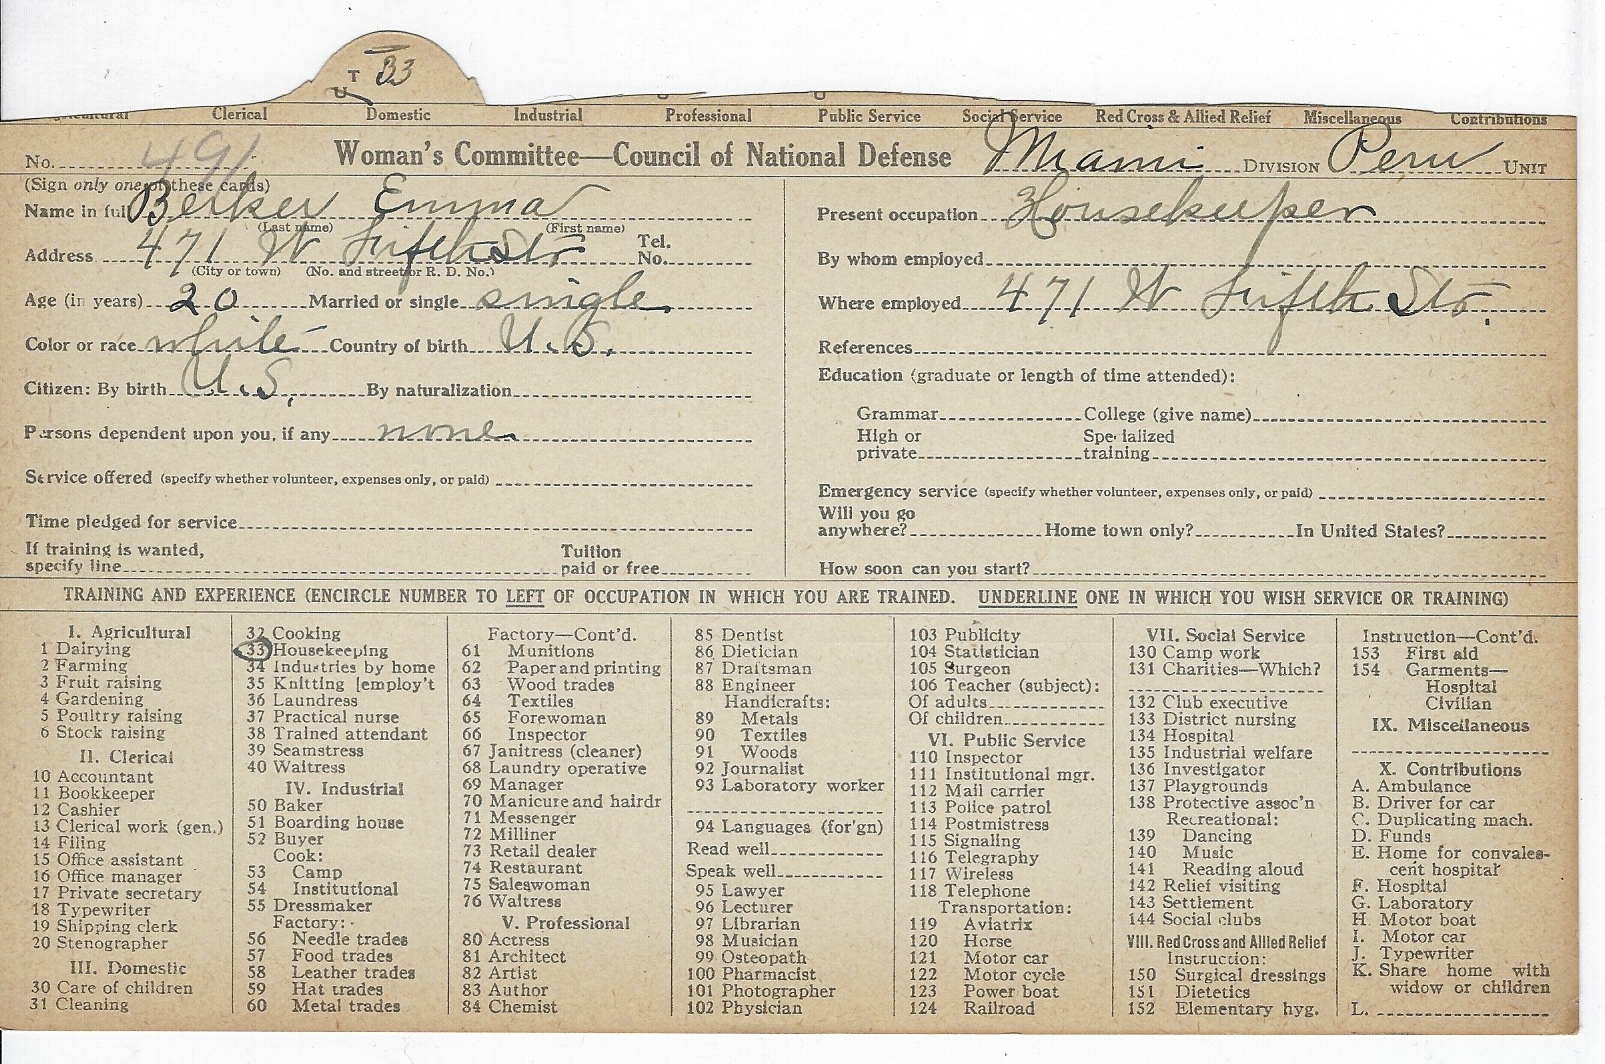 T 33
Agricultural Clerical Domestic Industrial Professional Public Service Social Service Red Cross & Allied Relief Miscellaneous Contributions
No. 491 Woman's Committee—Council of National Defense Miami DIVISION Peru UNIT
(Sign only one of these cards)
Name in full Berker Emma
(Last name) (First name)
Address 471 W Fifth Str Tel. No.
(City or town) (No. and street or R. D. No.)
Age (in years) 20 Married or single single
Color or race white Country of birth U.S.
Citizen: By birth U.S. By naturalization
Persons dependent upon you, if any none
Service offered (specify whether volunteer, expenses only, or paid)
Time pledged for service
If training is wanted, specify line Tuition paid or free
Present occupation Housekeeper
By whom employed
Where employed 471 W Fifth Str.
References
Education (graduate or length of time attended):
Grammar College (give name)
High or private Specialized training
Emergency service (specify whether volunteer, expenses only, or paid)
Will you go anywhere? Home town only? In United States?
How soon can you start?
TRAINING AND EXPERIENCE (ENCIRCLE NUMBER TO LEFT OF OCCUPATION IN WHICH YOU ARE TRAINED. UNDERLINE ONE IN WHICH YOU WISH SERVICE OR TRAINING)
I. Agricultural
1 Dairying
2 Farming
3 Fruit raising
4 Gardening
5 Poultry raising
6 Stock raising
II. Clerical
10 Accountant
11 Bookkeeper
12 Cashier
13 Clerical work (gen.)
14 Filing
15 Office assistant
16 Office manager
17 Private secretary
18 Typewriter
19 Shipping clerk
20 Stenographer
III. Domestic
30 Care of children
31 Cleaning
32 Cooking
33 Housekeeping
34 Industries by home
35 Knitting [employ't
36 Laundress
37 Practical nurse
38 Trained attendant
39 Seamstress
40 Waitress
IV. Industrial
50 Baker
51 Boarding house
52 Buyer
Cook:
53 Camp
54 Institutional
55 Dressmaker
Factory:
56 Needle trades
57 Food trades
58 Leather trades
59 Hat trades
60 Metal trades
Factory—Cont'd.
61 Munitions
62 Paper and printing
63 Wood trades
64 Textiles
65 Forewoman
66 Inspector
67 Janitress (cleaner)
68 Laundry operative
69 Manager
70 Manicure and hairdr
71 Messenger
72 Milliner
73 Retail dealer
74 Restaurant
75 Saleswoman
76 Waitress
V. Professional
80 Actress
81 Architect
82 Artist
83 Author
84 Chemist
85 Dentist
86 Dietician
87 Draftsman
88 Engineer
Handicrafts:
89 Metals
90 Textiles
91 Woods
92 Journalist
93 Laboratory worker
94 Languages (for'gn)
Read well
Speak well
95 Lawyer
96 Lecturer
97 Librarian
98 Musician
99 Osteopath
100 Pharmacist
101 Photographer
102 Physician
103 Publicity
104 Statistician
105 Surgeon
106 Teacher (subject):
Of adults
Of children
VI. Public Service
110 Inspector
111 Institutional mgr.
112 Mail carrier
113 Police patrol
114 Postmistress
115 Signaling
116 Telegraphy
117 Wireless
118 Telephone
Transportation:
119 Aviatrix
120 Horse
121 Motor car
122 Motor cycle
123 Power boat
124 Railroad
VII. Social Service
130 Camp work
131 Charities—Which?
132 Club executive
133 District nursing
134 Hospital
135 Industrial welfare
136 Investigator
137 Playgrounds
138 Protective assoc'n
Recreational:
139 Dancing
140 Music
141 Reading aloud
142 Relief visiting
143 Settlement
144 Social clubs
VIII. Red Cross and Allied Relief
Instruction:
150 Surgical dressings
151 Dietetics
152 Elementary hyg.
Instruction—Cont'd.
153 First aid
154 Garments—
Hospital
Civilian
IX. Miscellaneous
X. Contributions
A. Ambulance
B. Driver for car
C. Duplicating mach.
D. Funds
E. Home for convales-
cent hospital
F. Hospital
G. Laboratory
H Motor boat
I. Motor car
J. Typewriter
K. Share home with
widow or children
L.